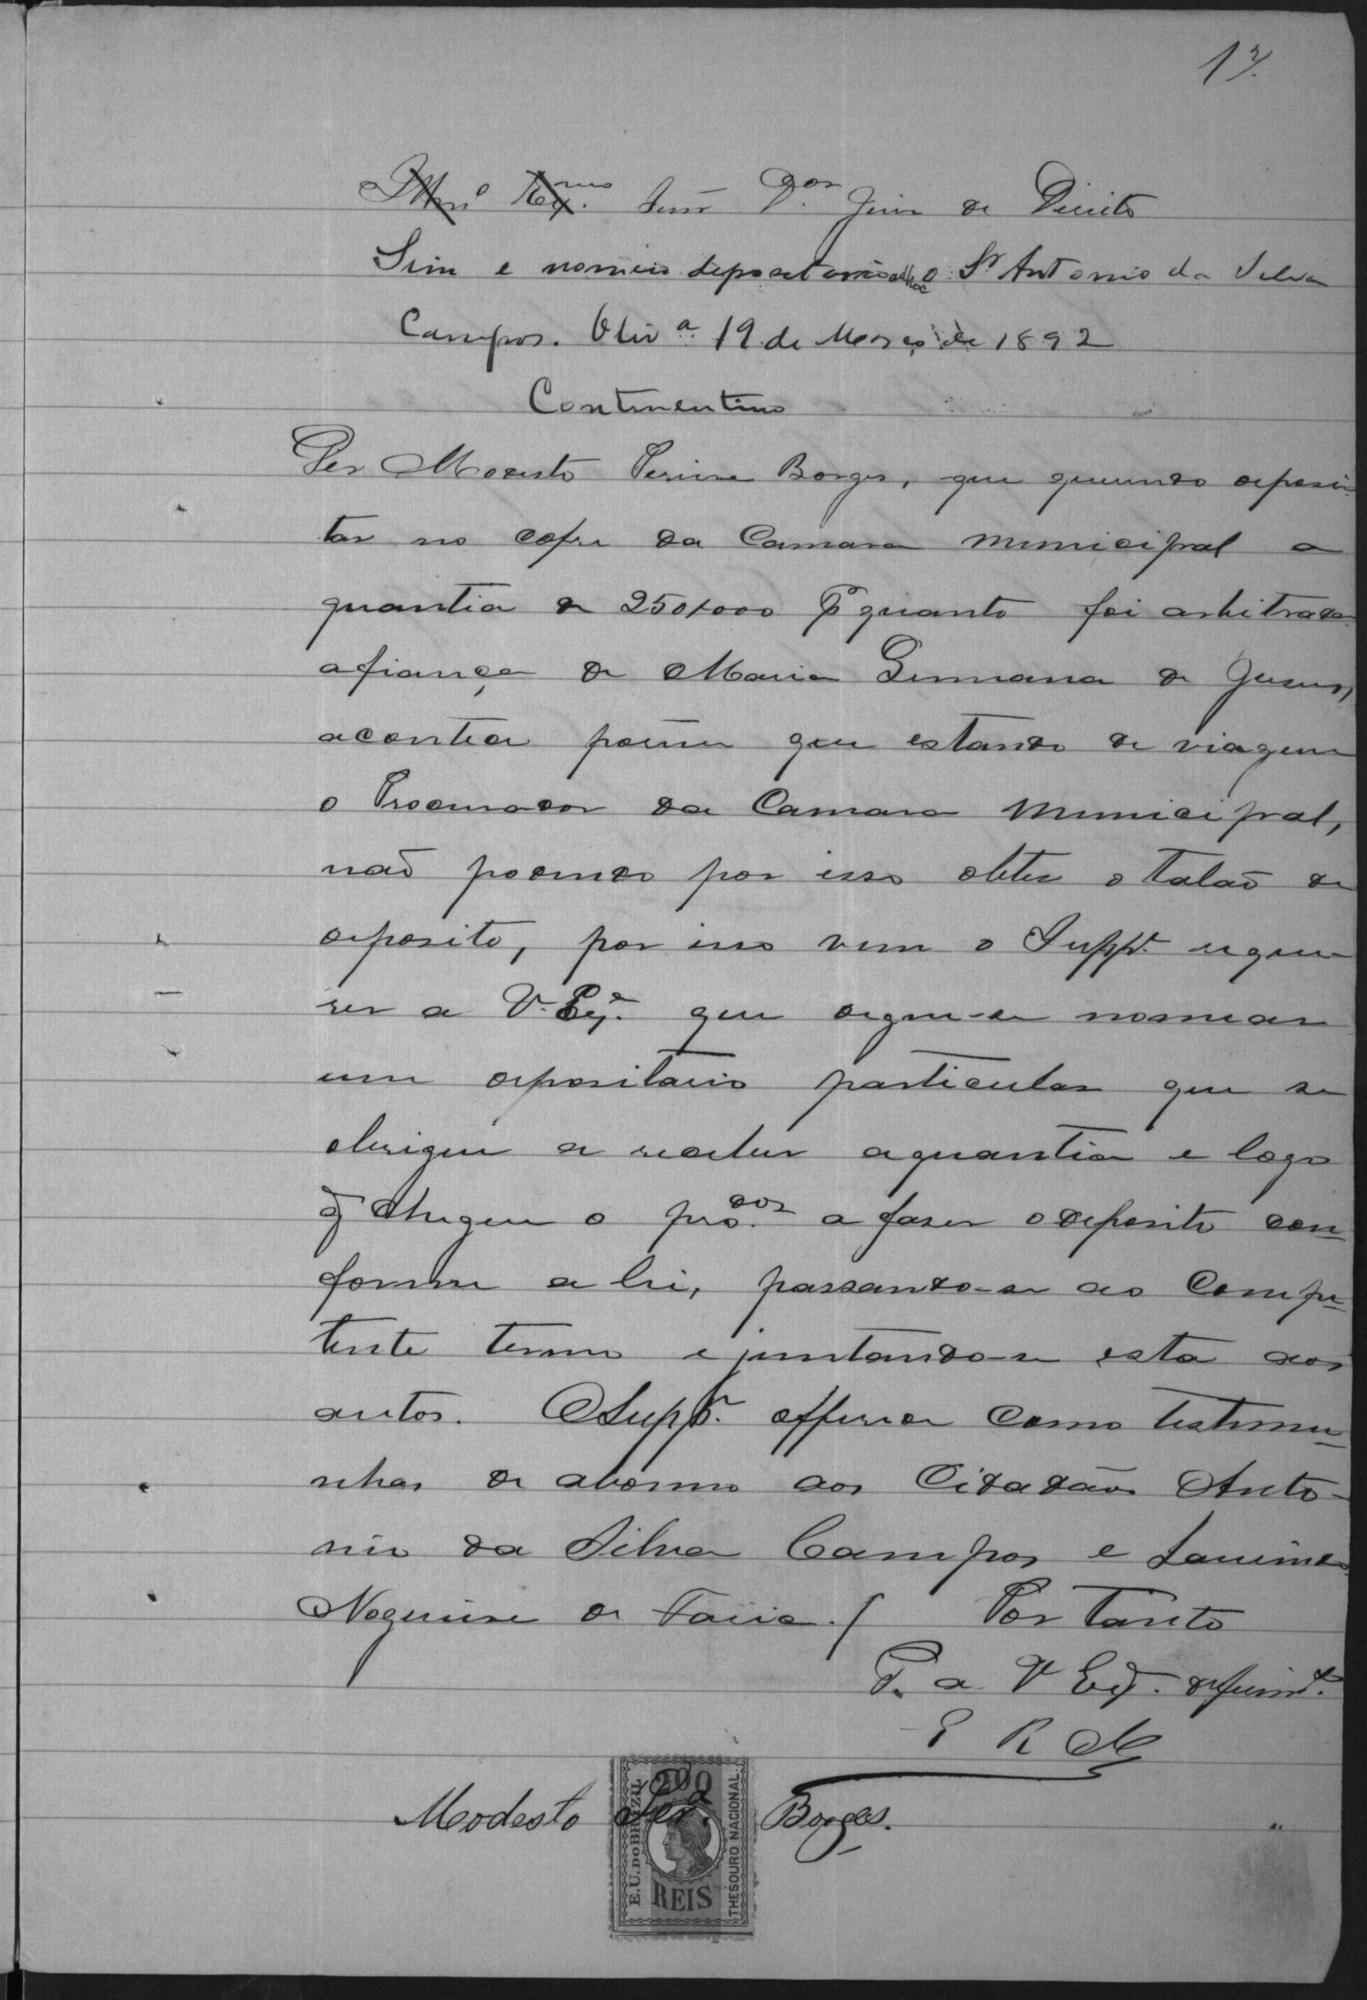 17.
Illmo. Exmo. Senr. Dor. Juiz de Direito
Sim e nomeio depositario ad hoc o Sr Antonio da Silva
Campos. Olivª. 19 de Março de 1892
Continentino
Diz Modesto Pereira Borges, que querendo deposi-
tar no cofre da Camara Municipal a
quantia de 250$000 pr quanto foi arbitrada
a fiança de Maria Germana de Jesus,
acontece porem que estando de viagem
o Procurador da Camara Municipal,
não podendo por isso obter o talão de
deposito, por isso vem o Suppe. reque-
rer a V. Exª. que digne-se nomear
um depositario particular que se
obrigue a receber a quantia e logo
q̃ chegue o prodor. a fazer o deposito con-
forme a lei, passando-se ao Compe-
tente termo e juntando-se esta aos
autos. O Suppe. offerece como testemu-
nhas de abono aos Cidadãos Anto-
nio da Silva Campos e
Nogueira de Faria./ Por tanto
P. a V Exª. deferimto.
E R Mce
Modesto Perª. Borges.
E.U. DO BRAZIL
200
REIS
THESOURO NACIONAL